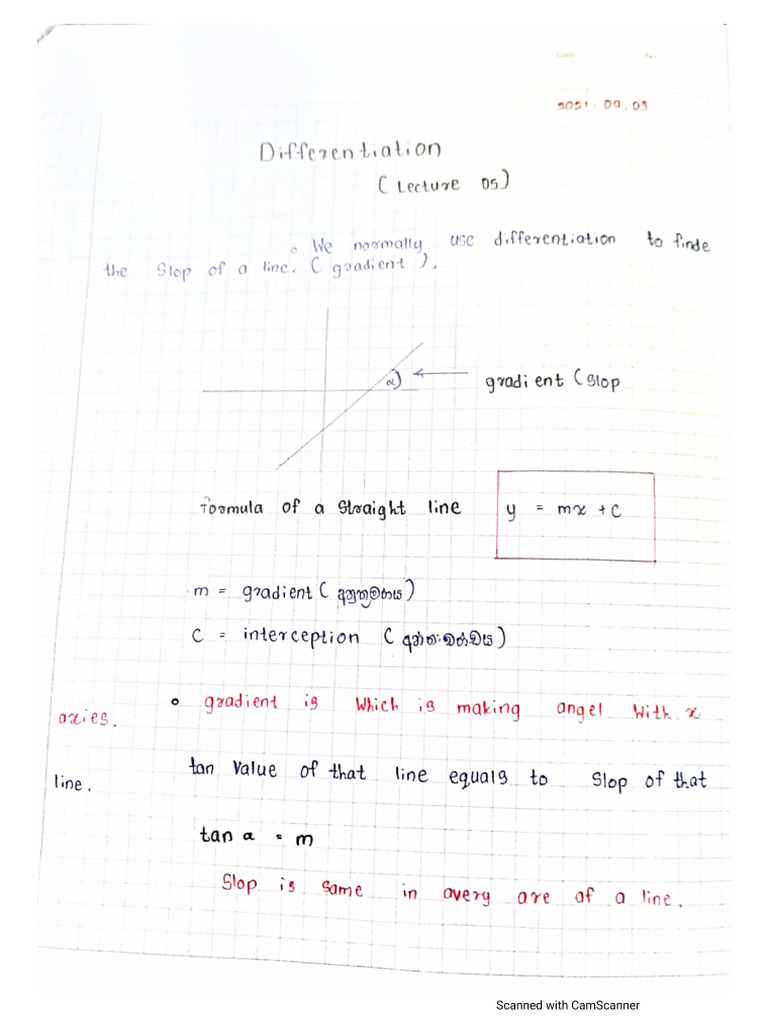 Date No
2021.09.03
Differentiation
(Lecture 05)
o We normally use differentiation to finde
the Slop of a line. (gradient).
α
gradient (Slop
formula of a straight line
y = mx + c
m = gradient (අනුක්‍රමණය)
C = interception (අන්තඃඛණ්ඩය)
o gradient is which is making angel with x
axies.
tan value of that line equals to Slop of that
line.
tan α = m
Slop is same in avery are of a line.
Scanned with CamScanner